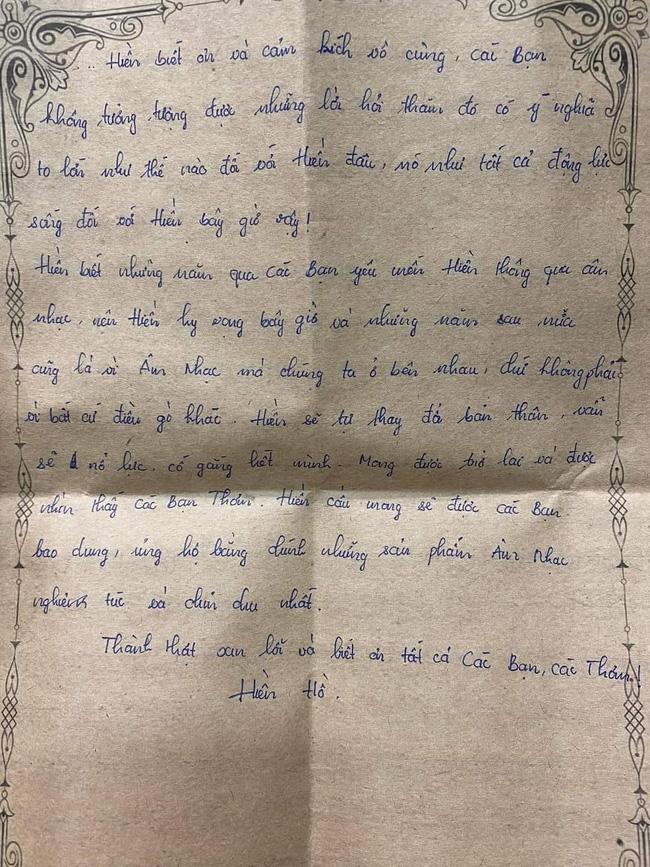 ... Hiền biết ơn và cảm kích vô cùng, Các Bạn
không tưởng tượng được những lời hỏi thăm đó có ý nghĩa
to lớn như thế nào đối với Hiền đâu, nó như tất cả động lực
sống đối với Hiền bây giờ vậy!
Hiền biết những năm qua Các Bạn yêu mến Hiền thông qua âm
nhạc, nên Hiền hy vọng bây giờ và những năm sau nữa
cũng là vì Âm Nhạc mà chúng ta ở bên nhau, chứ không phải
vì bất cứ điều gì khác. Hiền sẽ tự thay đổi bản thân, vẫn
sẽ nỗ lực, cố gắng hết mình. Mong được trở lại và được
nhìn thấy Các Bạn Thơm. Hiền cầu mong sẽ được Các Bạn
bao dung, ủng hộ bằng chính những sản phẩm Âm Nhạc
nghiêm túc và chỉn chu nhất.
Thành thật xin lỗi và biết ơn tất cả Các Bạn, các Thơm!
Hiền Hồ.